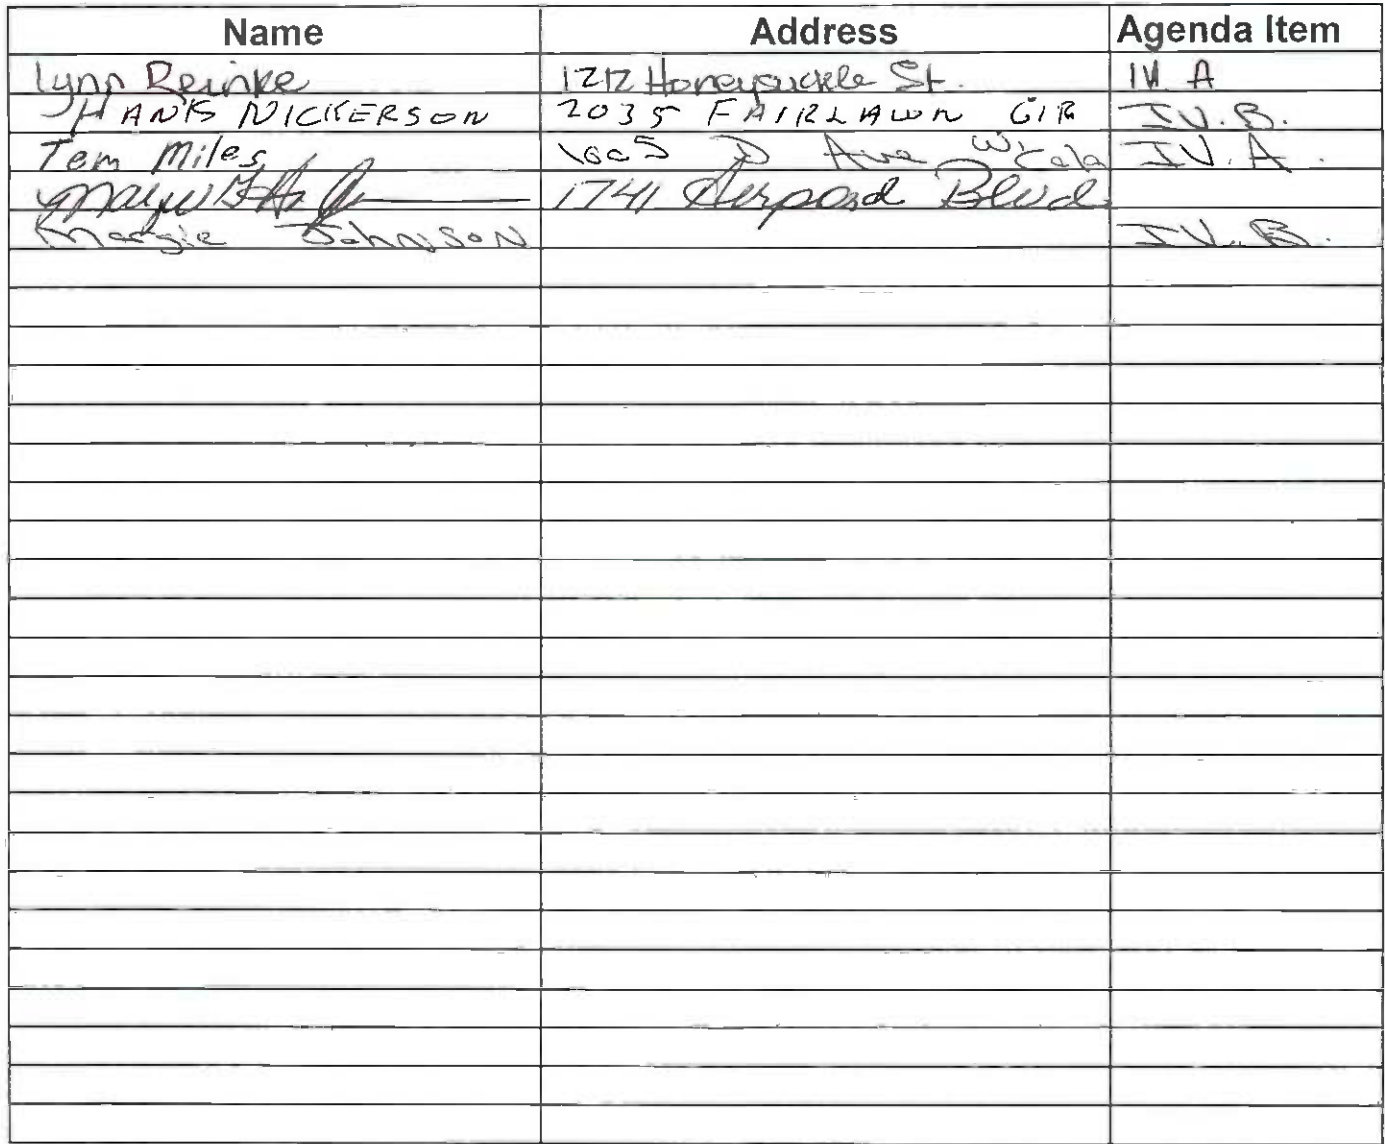 Name Address Agenda Item
Lynn Reinke 1212 Honeysuckle St. IV. A
HANK NICKERSON 2035 FAIRLAWN CIR IV.B.
Tem Miles D Ave W. Cola IV. A.
1741 Blvd
Margie Johnson IV. B.